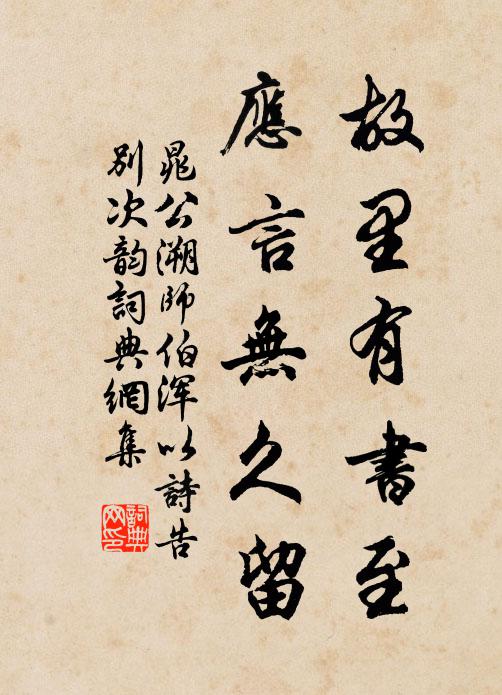 故里有書至
應言無久留
晁公溯師伯渾以詩告
別次韵詞典網集
詞典
网印